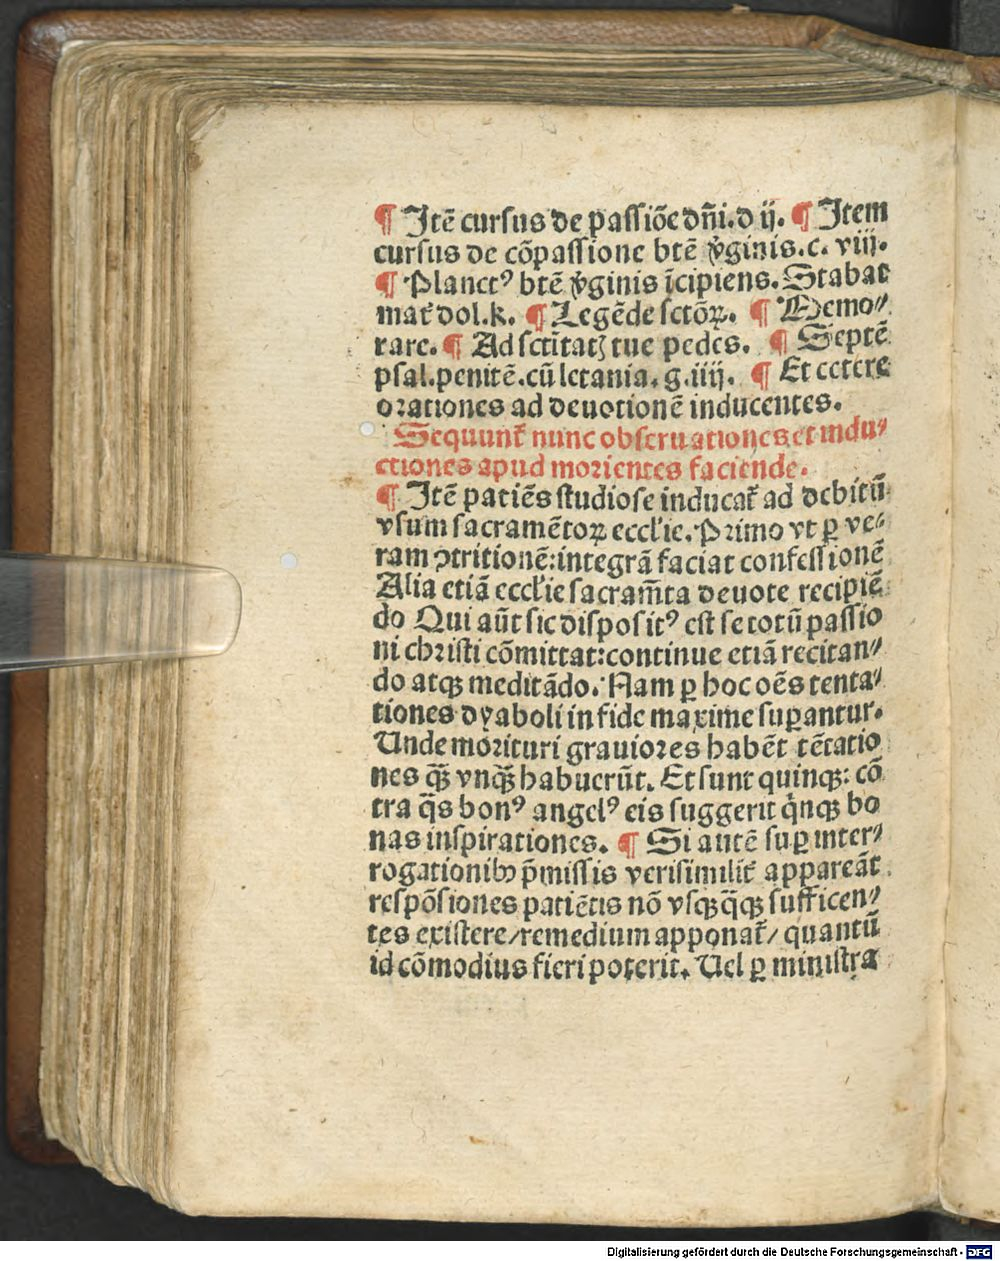 ¶ Itē cursus de passiōe dn̄i.d ij. ¶ Item
cursus de cōpassione btē v̄ginis.c. viij.
¶ Planctꝰ btē v̄ginis īcipiens. Stabat
mat̄ dol.k. ¶ Legēde sctōꝝ. ¶ Memo⸗
rare. ¶ Ad sctītatꝫ tue pedes. ¶ Septē
psal.penitē.cū letania. g.iiij. ¶ Et cetere
orationes ad deuotionē inducentes.
Sequunt̄ nunc obseruationes et indu⸗
ctiones apud morientes faciende.
¶ Itē patiēs studiose inducat̄ ad debitū
vsum sacramētoꝝ eccl'ie. Primo vt ꝑ ve⸗
ram ↄtritionē:integrā faciat confessionē
Alia etiā eccl'ie sacram̄ta deuote recipiē
do Qui aūt sic dispositꝰ est se totū passio
ni christi cōmittat:continue etiā recitan⸗
do atqꝫ meditādo. Nam ꝑ hoc oēs tenta⸗
tiones dyaboli in fide maxime suꝑantur.
Unde morituri grauiores habēt tētatio
nes qꝫ̄ vnqꝫ̄ habuerūt. Et sunt quinqꝫ: cō
tra q̄s bonꝰ angelꝰ eis suggerit q̇nqꝫ bo
nas inspirationes. ¶ Si autē suꝑ inter⸗
rogationibꝰ p̄missis verisimilit̄ appareāt
respōsiones patiētis nō vsqꝫq̄qꝫ sufficen⸗
tes existere/remedium apponat̄/ quantū
id cōmodius fieri poterit. Uel ꝑ ministra
Digitalisierung gefördert durch die Deutsche Forschungsgemeinschaft - DFG